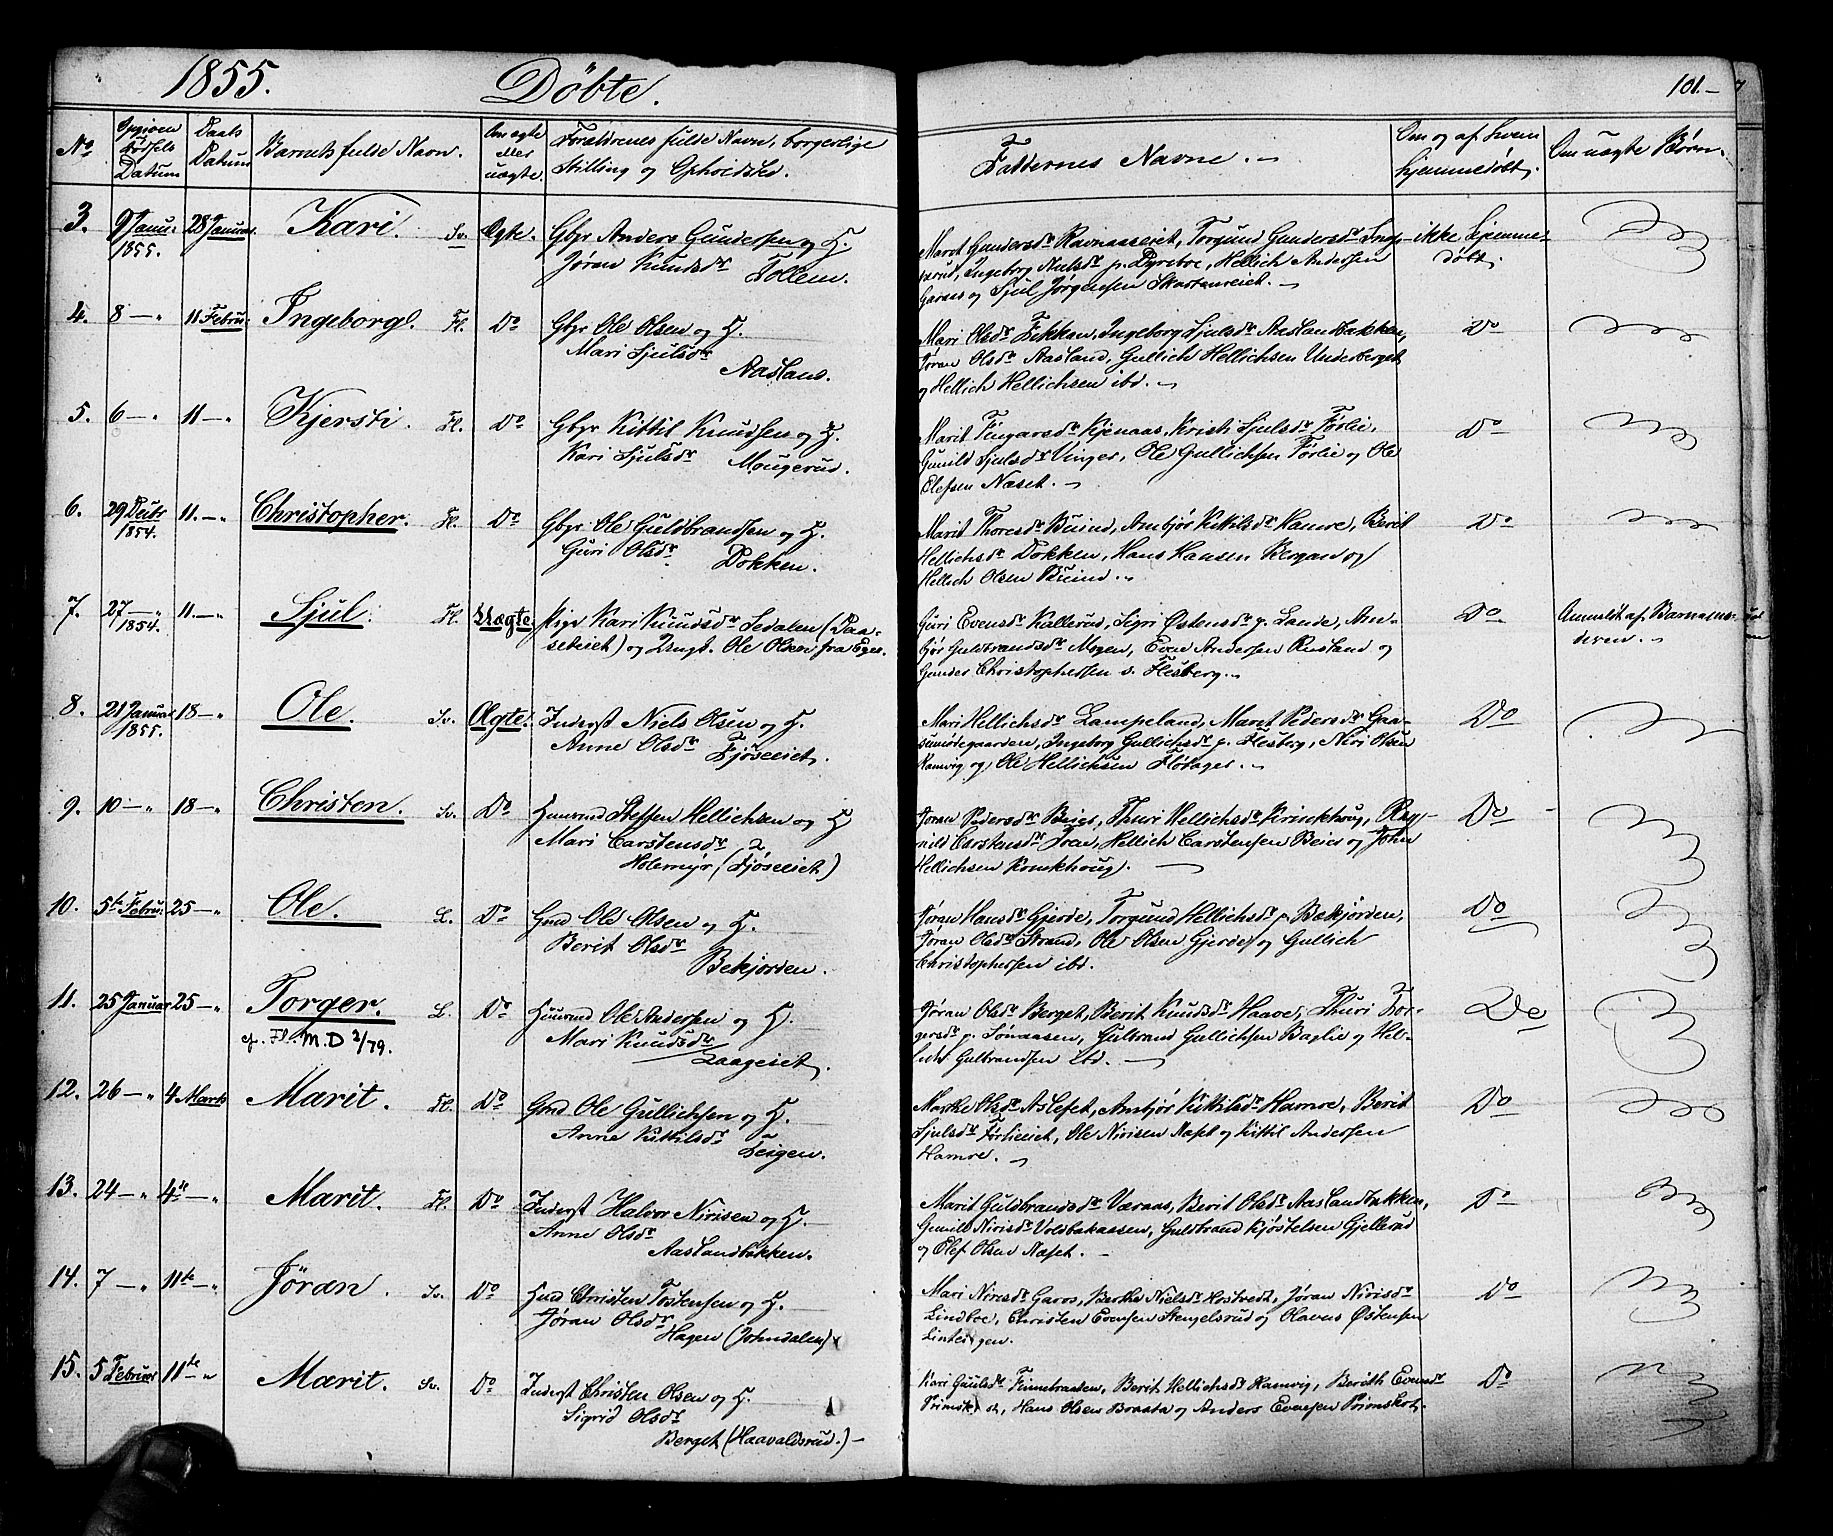 1855. Döbte. 101.-
No
Opgiven Födsels Datum
Daabs Datum
Barnets fulde Navn.
Om ægte eller uægte.
Forældrenes fulde Navn, borgerlige Stilling og Opholdsted.
Faddernes Navne. -
Om og af hvem hjemmedöbt.
Om uægte Börn.
3. 9 Janu. 1855. 28 Januar. Kari. Sv. Ægte. Gbr Anders Gundersen og H.
Jøran Knudsdr Follem.
Maret Gundersdr Ravnaaseiet, Torgund Gundersdr
Ingeborg Nielsdr p. Dyreboe, Hellich Andersen
Garaas og Sjul Jørgensen Skartumeiet. -
ikke hjemme-
döbt.
4. 8 - " 11 Febru: Ingeborg. Fl. Do Gbr Ole Olsen og H.
Mari Sjulsdr
Aasland.
Mari Olsdr Bekken, Ingeborg Sjulsdr Aaslandbakken,
Jøran Olsdr Aasland, Gullich Hellichsen Underberget
og Hellich Hellichsen ibd. -
Do
5. 6 - " 11 - " Kjersti. Fl. Do Gbr Kittil Knudsen og H.
Kari Sjulsdr Mougerud.
Marit Fingarsdr Kjenaas, Kristi Sjulsdr Førlie,
Gunild Sjulsdr Vinger, Ole Gullichsen Førlie og Ole
Olefsen Næset. -
Do
6. 29 Decbr 1854. 11. - " Christopher. Fl. Do Gbr Ole Guldbrandsen og H.
Guri Olsdr Dokken.
Marit Thoresdr Buind, Ambjör Kittilsdr Hamre, Berit
Hellichsdr Dokken, Hans Hansen Bergan og
Hellich Olsen Buind. -
Do
7. 27 - " 1854. 11. - " Sjul. Fl. Uægte Pige Kari Knudsdr Sedalen (Daa-
seteiet) og Ungk. Ole Olsen fra Eger.
Guri Evensdr Kallerud, Sigri Østensdr p. Lande, Am-
björ Guldbrandsdr Mogen, Even Andersen Rusland og
Gunder Christophersen v. Flesberg. -
Do
Anmeldt af Barnemo-
deren. -
8. 21 Januar 1855. 18 - " Ole. Sv. Ægte. Inderst Niels Olsen og H.
Anne Olsdr Fjöseeiet.
Mari Hellichsdr Lampeland, Maret Pedersdr Gaa-
sumödegaarden, Ingeborg Gullichsdr p. Flesberg, Niri Olsen
Ramvig og Ole Hellichsen Flodager. -
Do
9. 10 - " 18 - " Christen. Sv. Do Huusmd Steffen Hellichsen og H
Mari Carstensdr
Holemyr (Fjöseeiet)
Jøran Pedersdr Beies, Thuri Hellichsdr Krinkhoug, Rag-
nild Carstensdr Fran, Hellich Carstensen Beies og John
Hellichsen Krinkhoug. -
Do
10. 5te Febru: 25 - " Ole. L. Do Gmd Ole Olsen og H.
Berit Olsdr
Bekjorden.
Jøran Hansdr Gjerde, Torgund Hellichsdr p Bækjorden,
Jøran Olsdr Strand, Ole Olsen Gjerde og Gullich
Christophersen ibd.
Do
11. 25 Januar 25 - " Torger. L. Do Huusmd Ole Andersen og H.
cf. Fl. M. D 2/79. Mari Knudsdr
Laageiet.
Jøran Olsdr Berget, Berit Knudsdr Haave, Thuri Tor-
gersdr p. Tönaasen, Gulbrand Gullichsen Baglie og Hel-
lich Gulbrandsen ibd. -
Do
12. 26 - " 4 Marts Marit. Fl. Do Gmd Ole Gullichsen og H.
Anne Kittilsdr
Leigen.
Marthe Olsdr Aslefet, Ambjör Kittilsdr Hamre, Berit
Sjulsdr Førlieeiet, Ole Nirisen Næset og Kittil Andersen
Hamre. -
Do
13. 24 - " 4de - " Marit. Fl. Do Inderst Halvor Nirisen og H.
Anne Olsdr
Aaslandbakken.
Marit Guldbrandsdr Væraas, Berit Olsdr Aaslandbakken,
Gunild Nirisdr Voldbakaasen, Gulbrand Kjöstelsen Gjellerud
og Olef Olsen Næset. -
Do
14. 7 - " 11te - " Jöran. Sv. Do Hmd Christen Tostensen og H.
Jøran Olsdr
Hagen (Johndalen)
Mari Nirisdr Garaas, Berthe Nielsdr Kostvedt, Jøran Nirisdr
Lindboe, Christen Evensen Stengelsrud og Olavus Østensen
Do
15. 5 Februar 11te - " Marit. Sv. Do Inderst Christen Olsen og H.
Sigrid Olsdr
Berget (Haavaldsrud.) -
Kari Gulsdr Finnebraaten, Berit Hellichsdr Ramvig, Berith Evensdr
Hans Olsen Braata og Anders Evensen Primskot.
Do